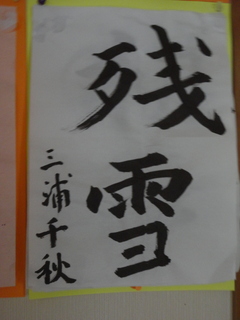 残雪
三浦千秋